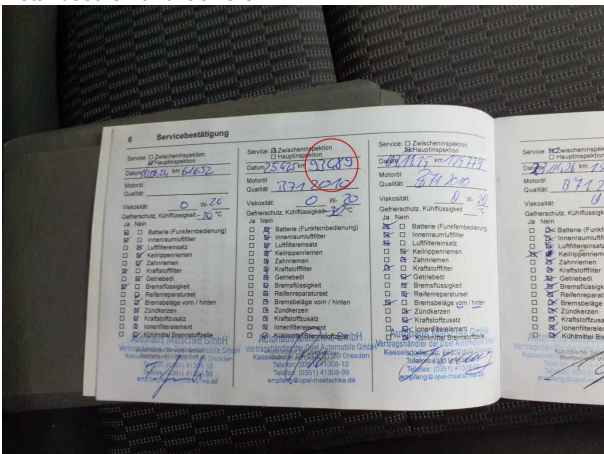 6 Servicebestätigung
Service: □ Zwischeninspektion
☒ Hauptinspektion
km 61652
Motoröl
Qualität:
Viskosität: 0 W- 20
Gefrierschutz, Kühlflüssigkeit -30 °C
Ja Nein
Batterie (Funkfernbedienung)
Innenraumluftfilter
Luftfiltereinsatz
Keilrippenriemen
Zahnriemen
Kraftstofffilter
Getriebeöl
Bremsflüssigkeit
Reifenreparaturset
Bremsbeläge vorn / hinten
Zündkerzen
Kraftstoffzusatz
Ionenfilterelement
Kühlmittel Brennstoffzelle
Autohaus Matschke GmbH
Vertragshändler der Opel Automobile GmbH
Dresden
Telefon: (0351) 41308-12
Telefax: (0351) 41308-99
empfang@opel-maetschke.de
Service: ☒ Zwischeninspektion
□ Hauptinspektion
Datum 25.6.25 km 93689
Motoröl
Qualität: B71 2010
Viskosität: 0 W- 20
Gefrierschutz, Kühlflüssigkeit °C
Ja Nein
Batterie (Funkfernbedienung)
Innenraumluftfilter
Luftfiltereinsatz
Keilrippenriemen
Zahnriemen
Kraftstofffilter
Getriebeöl
Bremsflüssigkeit
Reifenreparaturset
Bremsbeläge vorn / hinten
Zündkerzen
Kraftstoffzusatz
Ionenfilterelement
Kühlmittel Brennstoffzelle
Vertragshändler der Opel Automobile GmbH
Dresden
Telefon: (0351) 41308-12
Telefax: (0351) 41308-99
empfang@opel-maetschke.de
Service: □ Zwischeninspektion
☒ Hauptinspektion
km 125779
Motoröl
Qualität: B71 2010
Viskosität: 0 W- 20
Gefrierschutz, Kühlflüssigkeit °C
Ja Nein
Batterie (Funkfernbedienung)
Innenraumluftfilter
Luftfiltereinsatz
Keilrippenriemen
Zahnriemen
Kraftstofffilter
Getriebeöl
Bremsflüssigkeit
Reifenreparaturset
Bremsbeläge vorn / hinten
Zündkerzen
Kraftstoffzusatz
Ionenfilterelement
Kühlmittel Brennstoffzelle
Vertragshändler der Opel Automobile GmbH
Telefax: (0351)
empfang@opel-maetschke.de
Service: ☒ Zwischeninspe
□ Hauptinspekti
km
Motoröl
Qualität: B71 2
Viskosität:
Gefrierschutz, Kühlflüssigke
Ja Nein
Batterie (Funkf
Innenraumluftfi
Luftfiltereinsatz
Keilrippenrieme
Zahnriemen
Kraftstofffilter
Getriebeöl
Bremsflüssigke
Reifenreparatur
Bremsbeläge v
Zündkerzen
Kraftstoffzusatz
Ionenfilterelem
Kühlmittel Bren